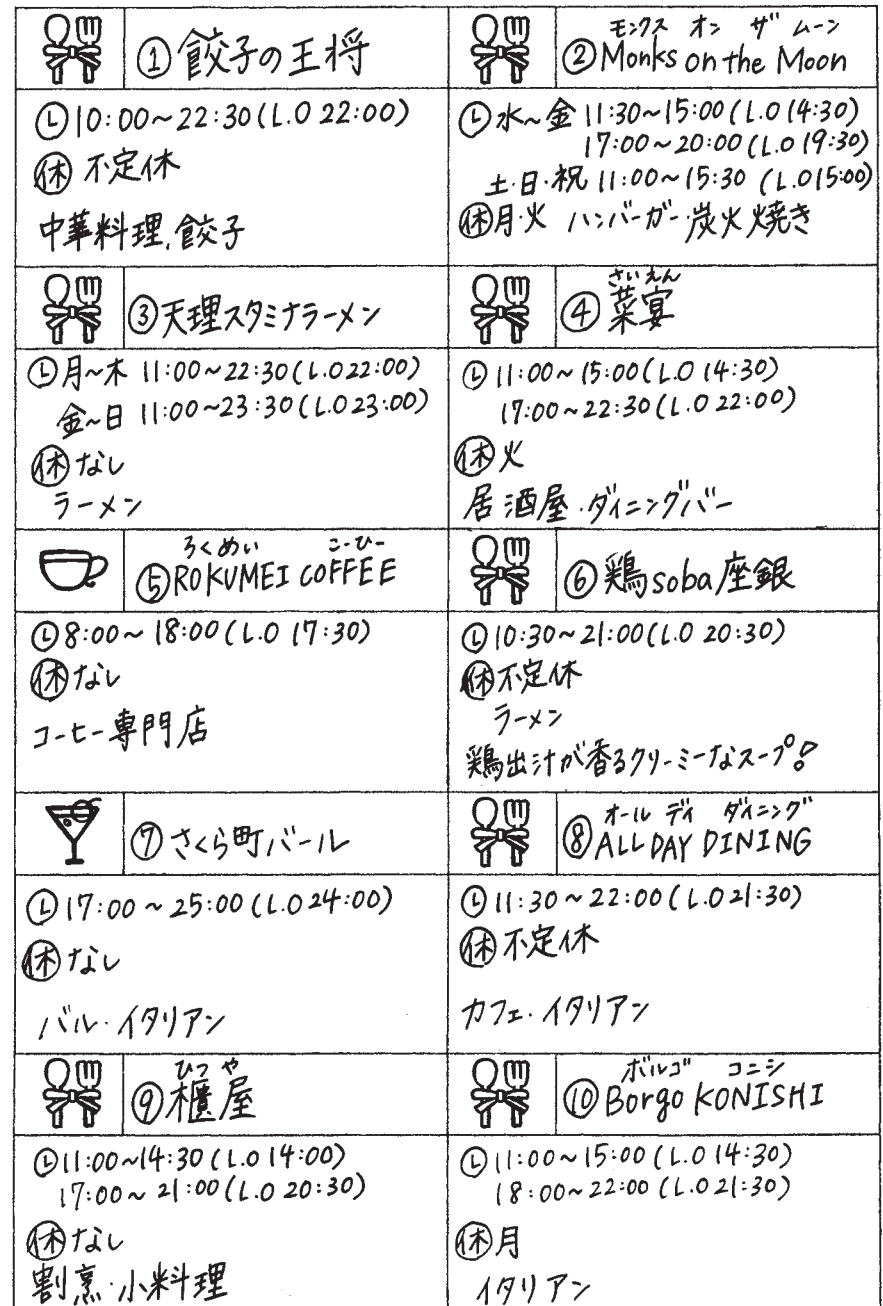 ①餃子の王将
🕒10:00～22:30(L.O 22:00)
㊡不定休
中華料理、餃子
モンクス オン ザ ムーン
②Monks on the Moon
🕒水～金 11:30～15:00(L.O 14:30)
17:00～20:00(L.O 19:30)
土・日・祝 11:00～15:30 (L.O 15:00)
㊡月・火 ハンバーガー・炭火焼き
③天理スタミナラーメン
🕒月～木 11:00～22:30(L.O 22:00)
金～日 11:00～23:30(L.O 23:00)
㊡なし
ラーメン
さいえん
④菜宴
🕒11:00～15:00(L.O 14:30)
17:00～22:30(L.O 22:00)
㊡火
居酒屋・ダイニングバー
ろくめい こーひー
⑤ROKUMEI COFFEE
🕒8:00～18:00(L.O 17:30)
㊡なし
コーヒー専門店
⑥鶏soba座銀
🕒10:30～21:00(L.O 20:30)
㊡不定休
ラーメン
鶏出汁が香るクリーミーなスープ!
⑦さくら町バール
🕒17:00～25:00(L.O 24:00)
㊡なし
バル・イタリアン
オール デイ ダイニング
⑧ALL DAY DINING
🕒11:30～22:00(L.O 21:30)
㊡不定休
カフェ・イタリアン
ひつ や
⑨櫃屋
🕒11:00～14:30(L.O 14:00)
17:00～21:00(L.O 20:30)
㊡なし
割烹・小料理
ボルゴ コニシ
⑩Borgo KONISHI
🕒11:00～15:00(L.O 14:30)
18:00～22:00(L.O 21:30)
㊡月
イタリアン